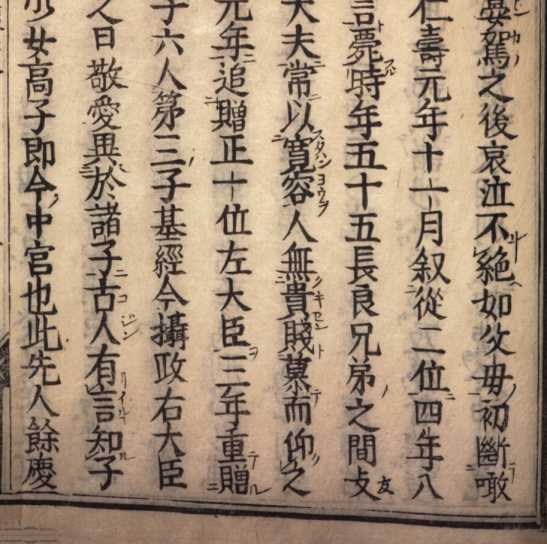 晏駕之後哀泣不絕如父母初斷噉
仁壽元年十一月叙從二位四年八
言薨時年五十五長良兄弟之間攴友
大夫常以寛容人無貴賤慕而仰之
元年追贈正十位左大臣三年重贈
子六人第三子基經今攝政右大臣
之日敬愛異於諸子古人有言知子
少女高子即今中宮也此先人餘慶